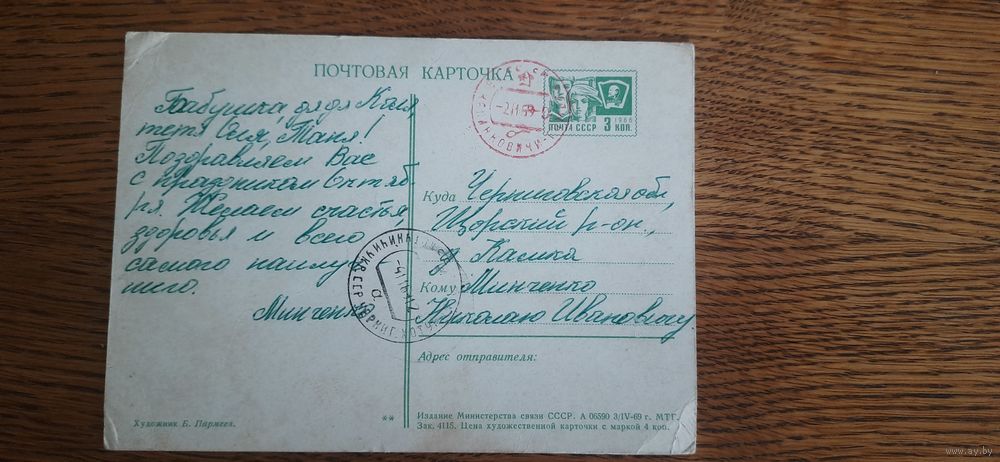 ПОЧТОВАЯ КАРТОЧКА
ПОЧТА СССР 1966 3 КОП.
Бабушка, дядя Коля,
тетя Оля, Таня!
Поздравляем Вас
с праздником Октяб
ря. Желаем счастья
здоровья и всего
самого наилуч
шего.
Минченко
Куда Черниговская обл,
Щорский р-он,
Кому Минченко
Николаю Ивановичу
Адрес отправителя:
Художник Б. Пармеев.
**
Издание Министерства связи СССР. А 06590 3/IV-69 г. МТГ.
Зак. 4115. Цена художественной карточки с маркой 4 коп.
www.ay.by